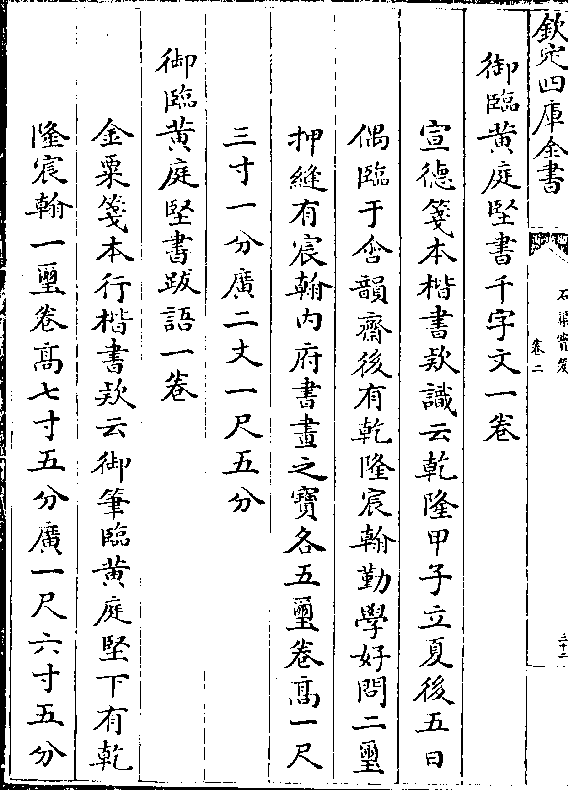 欽定四庫全書
石渠寳笈
卷二
三十二
御臨黄庭堅書千字文一卷
宣德箋本楷書欵識云乾隆甲子立夏後五日
偶臨于含韻齋後有乾隆宸翰勤學好問二璽
押縫有宸翰内府書畫之寶各五璽卷髙一尺
三寸一分廣二丈一尺五分
御臨黄庭堅書跋語一卷
金粟箋本行楷書欵云御筆臨黄庭堅下有乾
隆宸翰一璽卷髙七寸五分廣一尺六寸五分